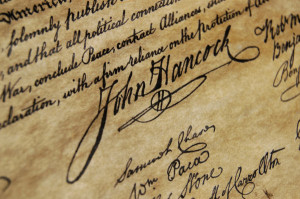 America,
solemnly publish
and that all political connection
War, conclude Peace, contract Alliances, and
claration, with a firm reliance on the protection of
John Hancock
Robt M
Benjamin
Samuel Chase
Wm Paca
Stone
of Carrollton